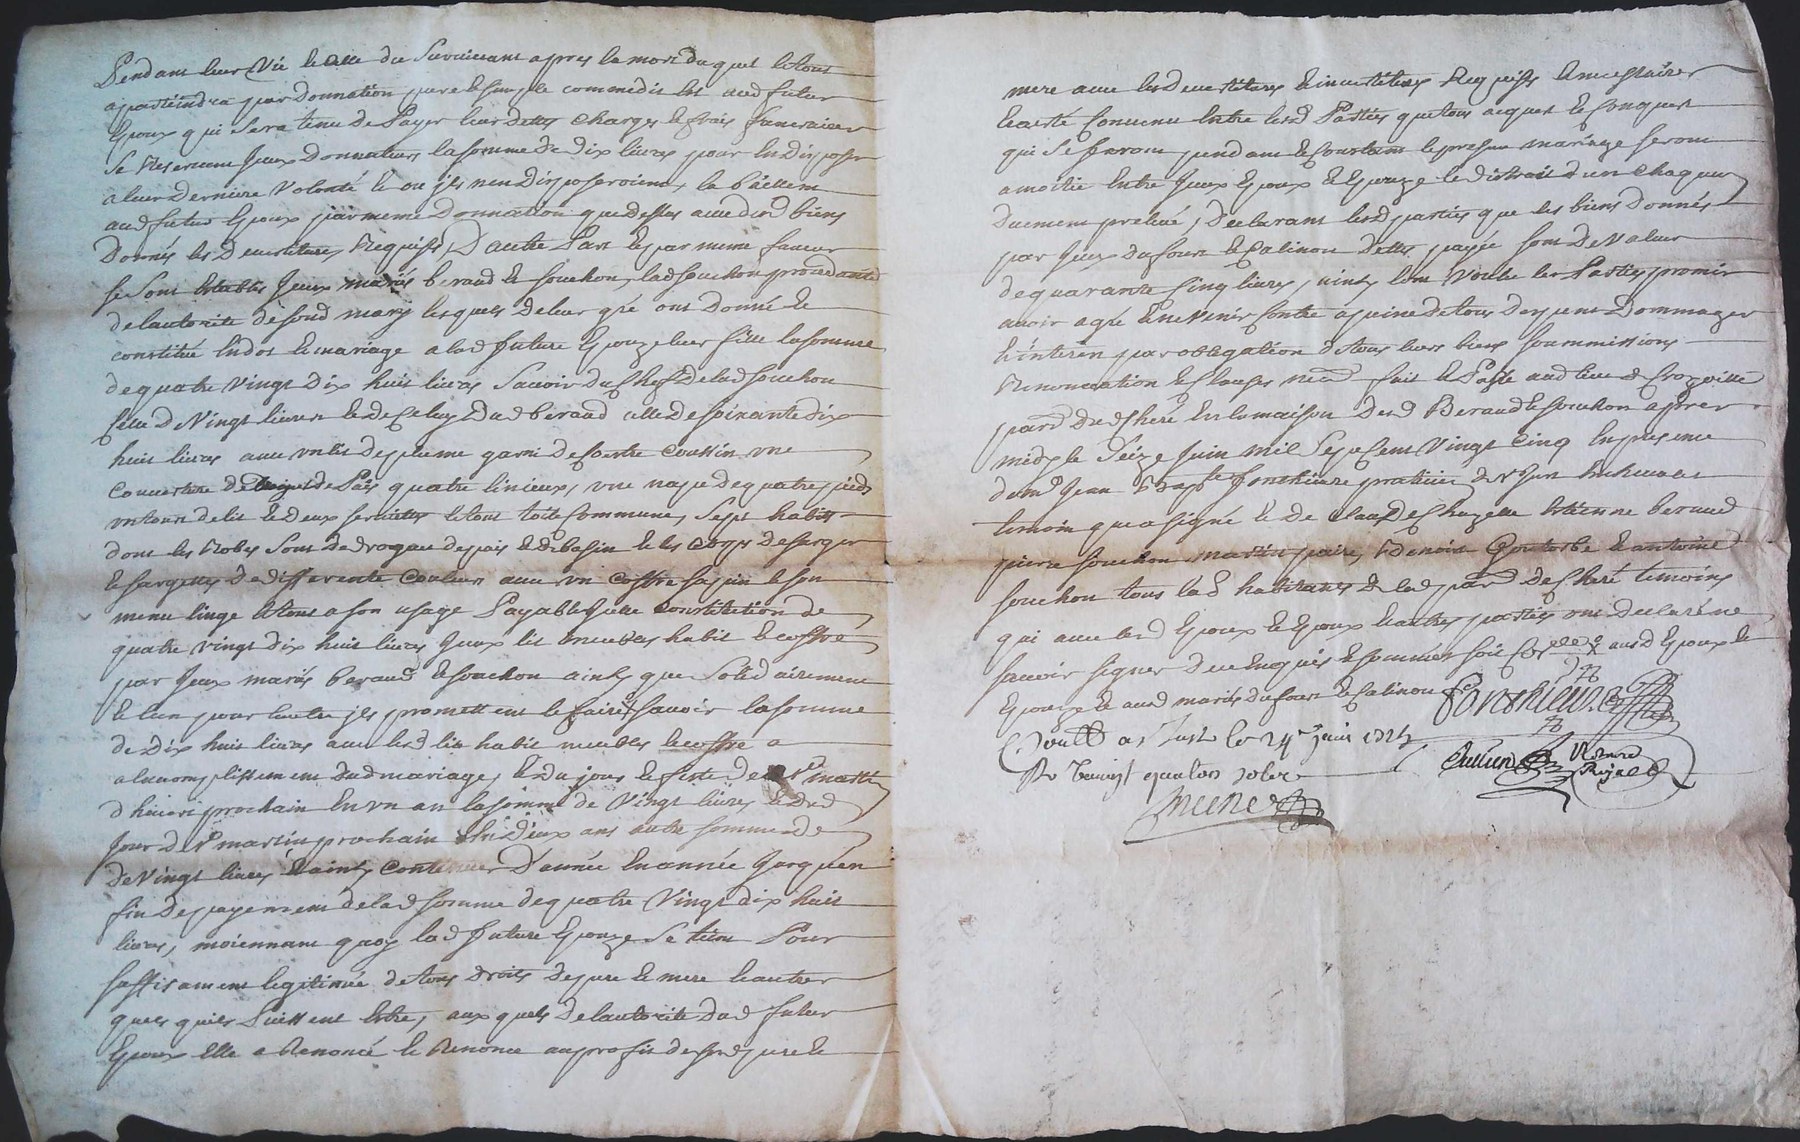 Pendant leur vie et celle du survivant apres la mort duquel le tout
apartiendra par donnation pure et simple comme dit est aud futur
Epoux qui sera tenu de payer leur dettes charges et frais funeraires
se reservent yceux donnateurs la somme de dix livres pour en disposer
a leur derniere volonté et ou jls nen disposeroient, la
aud futur Epoux par meme donnation que dessus avec desd biens
donnés les devestitures requises, D'autre part et par meme faveur
se sont establis yceux mariés beraud et souchon, lad souchon procedante
de lautorité desond mary lesquels de leur gré ont donné et
constitué en dot et mariage a lad future Epouze leur fille la somme
de quatre vingt dix huit livres scavoir du chef de lad souchon
celle de vingt livres et de celuy dud beraud celle de soixante dix
huit livres avec un lit de plume garni de coestre coussin une
couverture de païs quatre linieux, une nape de quatre pieds
un tour de lit et deux serviettes le tout toile commune, sept habits
dont les robes sont de drogue de païs et de basin et les corps de sarge
et sargettes de differente couleur avec un coffre sapin et son
menu linge le tout a son usage Payable ycelle constitution de
quatre vingt dix huit livres yceux lit meubles habit et coffre
par yceux mariés beraud et souchon ainsy que solidairement
et lun pour lautre jls promettent le faire scavoir la somme
de dix huit livres avec lesd lit habit meubles et coffre a
laccomplissement dud mariage, et du jour et feste de st martin
d'hiver prochain en un an la somme de vingt livres, et dud
jour de st martin prochain en deux ans autre somme de
de vingt livres, et ainsy continuer d'année en année jusqu'en
fin de payement de lad somme de quatre vingt dix huit
livres, moiennant quoy lad future Epouze se tient pour
suffisament legitimée de tous droits de pere et mere et autres
quels quils puissent estre, aux quels de lautorité dud futur
Epoux elle a renoncé et renonce au profit de sesd pere et
mere avec les devestitures et investitures requises et necessaires
et a esté convenu entre lesd Parties que tous acquets et conquets
qui se feront pendant et constant le present mariage seront
a moitié entre yceux Epoux et Epouze le distrait d'un chaqun
duement prelevé, Declarant lesd parties que les biens donnés
par yceux dufour et calinon dettes payée sont de valeur
de quarante cinq livres, ainsy lont voulu les Parties promis
avoir agré et ne venir contre a peine de tous depens dommages
et interets par obligation de tous leurs biens soummissions
renonciation et clauses fait et Passé au lieu de
par de Cheré en la maison desd Beraud et souchon apres
midy le seize juin mil sept cent vingt cinq en presence
de me Jean praticien de st Just en
temoin qui a signé et de claude Chazelle Estienne beraud
pierre souchon martin paire, benoit Goutorbe et antoine
souchon tous lad habitants de lad par de Cheré temoins
qui avec lesd Epoux et Epouze et autres parties ont declaré ne
scavoir signer de ce enquis et sommés soit aud Epoux et
Epouze et aud mariés dufour et calinon
Controllé a st Just le 24e juin 1725
Notaire
Royal